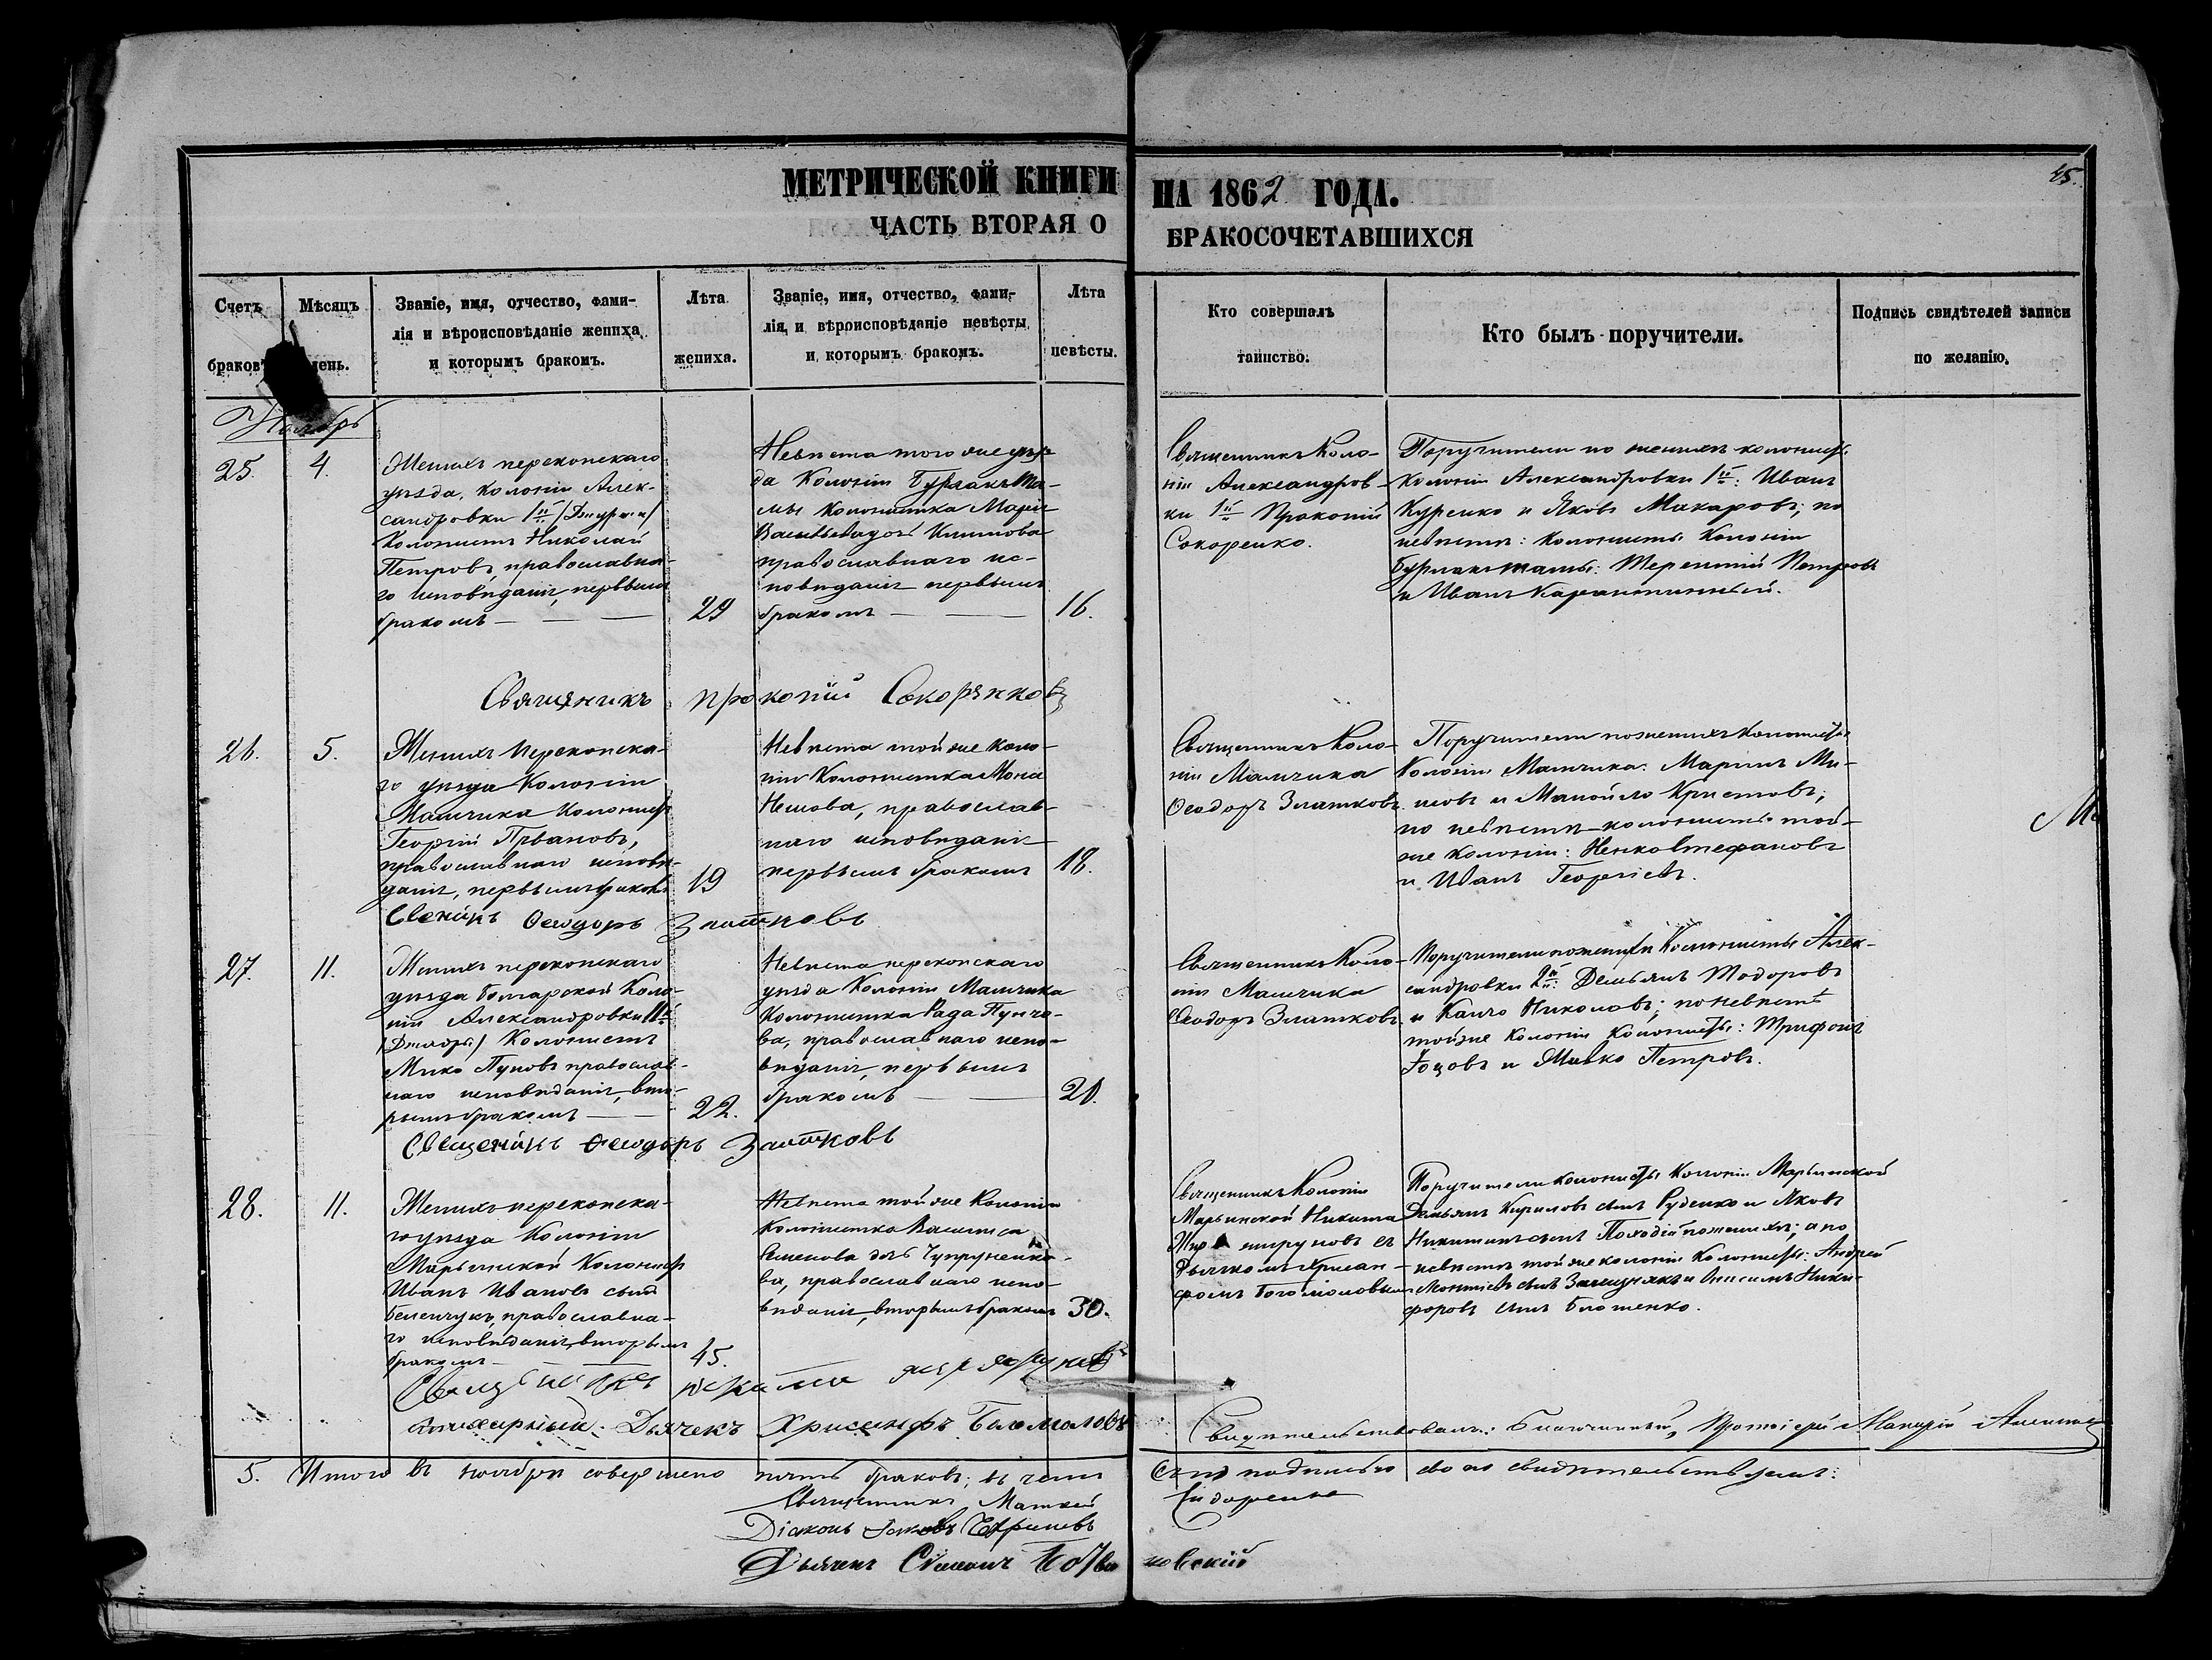 МЕТРИЧЕСКОЙ КНИГИ НА 1862 ГОДА.
45.
ЧАСТЬ ВТОРАЯ О БРАКОСОЧЕТАВШИХСЯ
Счетъ браковъ
Мѣсяцъ день.
Званіе, имя, отчество, фами-
лія и вѣроисповѣданіе жениха
и которымъ бракомъ.
Лѣта жениха.
Званіе, имя, отчество, фами-
лія, и вѣроисповѣданіе невѣсты
и которымъ бракомъ.
Лѣта невѣсты.
Кто совершалъ таинство.
Кто былъ поручители.
Подпись свидѣтелей записи по желанію.
Ноябрь
25.
4.
Женихъ перекопскаго
уѣзда, колоніи Алек-
сандровки 1й
Колонистъ Николай
Петровъ, православна-
го исповѣданія, первымъ
бракомъ
29
Невѣста того же уѣз-
да Колоніи Бурлакъ Та-
мы Колонистка Марія
Климова
православнаго ис-
повѣданія первымъ
бракомъ
16.
Священникъ Коло-
ніи Александров-
ки 1й Прокопій
Сокоренко.
Поручители по женихѣ колонисты
Колоніи Александровки 1й: Иванъ
Куренко и Яковъ Макаровъ; по
невѣстѣ: Колонисты Колоніи
Бурлакъ тамы: Терентій Петровъ
и Иванъ Карантинный.
Священикъ Прокопій Сокоренко
26.
5.
Женихъ Перекопска-
го уѣзда Колоніи
Мамчика Колонистъ
Георгій Првановъ,
православнаго исповѣ-
данія, первымъ бракомъ
19
Невѣста той же Коло-
ніи Колонистка
православ-
наго исповѣданія
первымъ бракомъ
18.
Священникъ Коло-
ніи Мамчика
Ѳеодоръ Златковъ.
Поручители по женихѣ Колонисты
Колоніи Мамчика: Маринъ Ми-
новъ и Манойло Христовъ;
по невѣстѣ колонисты той-
же Колоніи: Ненко Стефановъ
и Иванъ Георгіевъ.
Ѳеодоръ Златковъ
27.
11.
Женихъ перекопскаго
уѣзда Болгарской Коло-
ніи Александровки
Колонистъ
Мико Пуновъ православ-
наго исповѣданія, вто-
рымъ бракомъ
22.
Невѣста перекопскаго
уѣзда Колоніи Мамчика
Колонистка Рада Пунчо-
ва, православнаго испо-
вѣданія, первымъ
бракомъ
20.
Священникъ Коло-
ніи Мамчика
Ѳеодоръ Златковъ.
Поручители по женихѣ Колонисты Алек-
сандровки 2й: Демьянъ Тодоровъ
и Канчо Николовъ; по невѣстѣ
той же Колоніи Колонисты: Трифонъ
и Живко Петровъ.
Ѳеодоръ Златковъ
28.
11.
Женихъ перекопска-
го уѣзда Колоніи
Марьинской Колонистъ
Иванъ Ивановъ сынъ
православна-
го исповѣданія, вторымъ
бракомъ
45.
Невѣста той же Колоніи
Колонистка Василиса
Семенова дочь Чупруненко-
ва, православнаго испо-
вѣданія, вторымъ бракомъ
30.
Священникъ Колоніи
Марьинской Никита
съ
Дьячкомъ Хрисан-
фомъ Богомоловымъ
Поручители колонисты Колоніи Марьинской
Демьянъ Кириловъ сынъ Руденко и Яковъ
Никитинъ сынъ по женихѣ; а по
невѣстѣ той же колоніи Колонисты: Андрей
сынъ и Онисимъ Ники-
форовъ сынъ
Никита
Дьячекъ Хрисанфъ Богомоловъ
Свидѣтельствовалъ: Благочинный, Протоіерей
5. Итого въ ноябрѣ совершено пять браковъ; въ чемъ съ подписью своею свидѣтельствуемъ:
Священникъ Матвѣй Сидоренко
Діаконъ Іаковъ
Дьячекъ